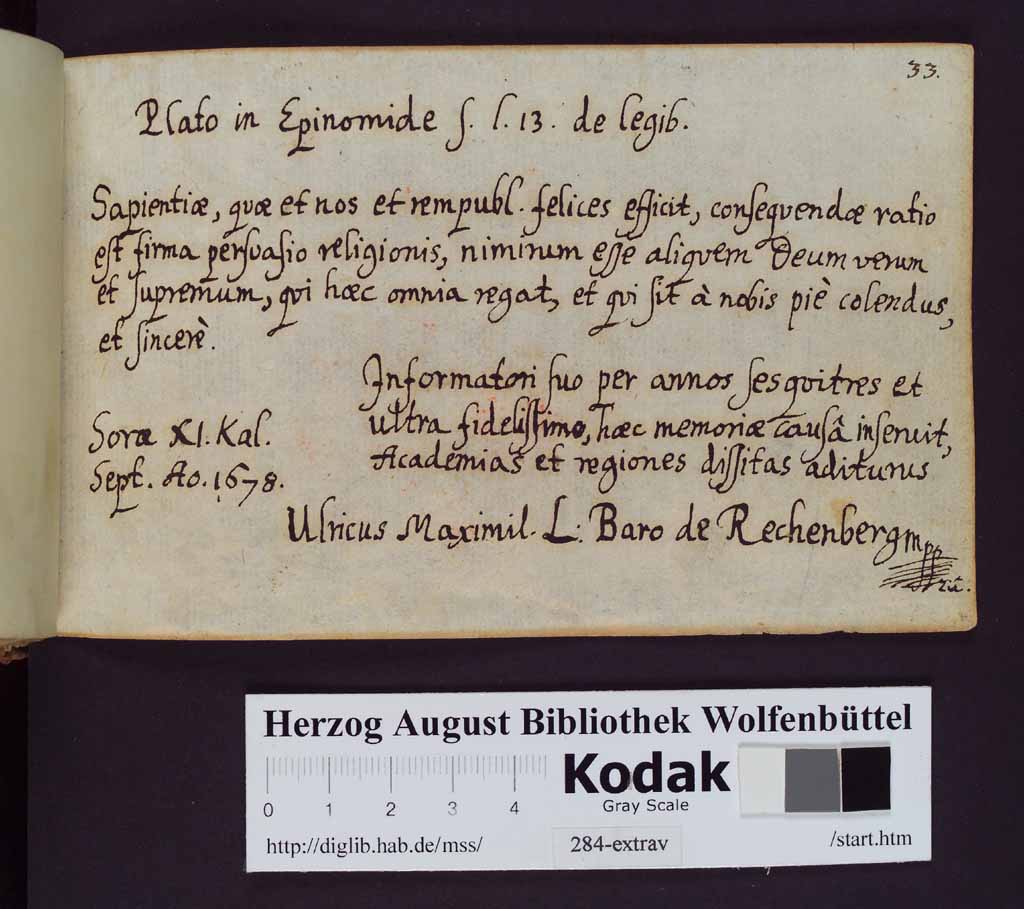 33.
Plato in Epinomide s. l. 13. de legib.
Sapientiæ, quæ et nos et rempubl. felices efficit, consequendæ ratio
est firma persuasio religionis, nimirum esse aliquem Deum verum
et supremum, qui hæc omnia regat, et qui sit à nobis piè colendus,
et sincerè.
Informatori suo per annos sesquitres et
ultra fidelissimo, hæc memoriæ causâ inseruit,
Academias et regiones dissitas aditurus
Soræ XI. Kal.
Sept. Ao. 1678.
Ulricus Maximil. L: Baro de Rechenberg mpp
Herzog August Bibliothek Wolfenbüttel
0 1 2 3 4
Kodak
Gray Scale
http://diglib.hab.de/mss/ 284-extrav /start.htm